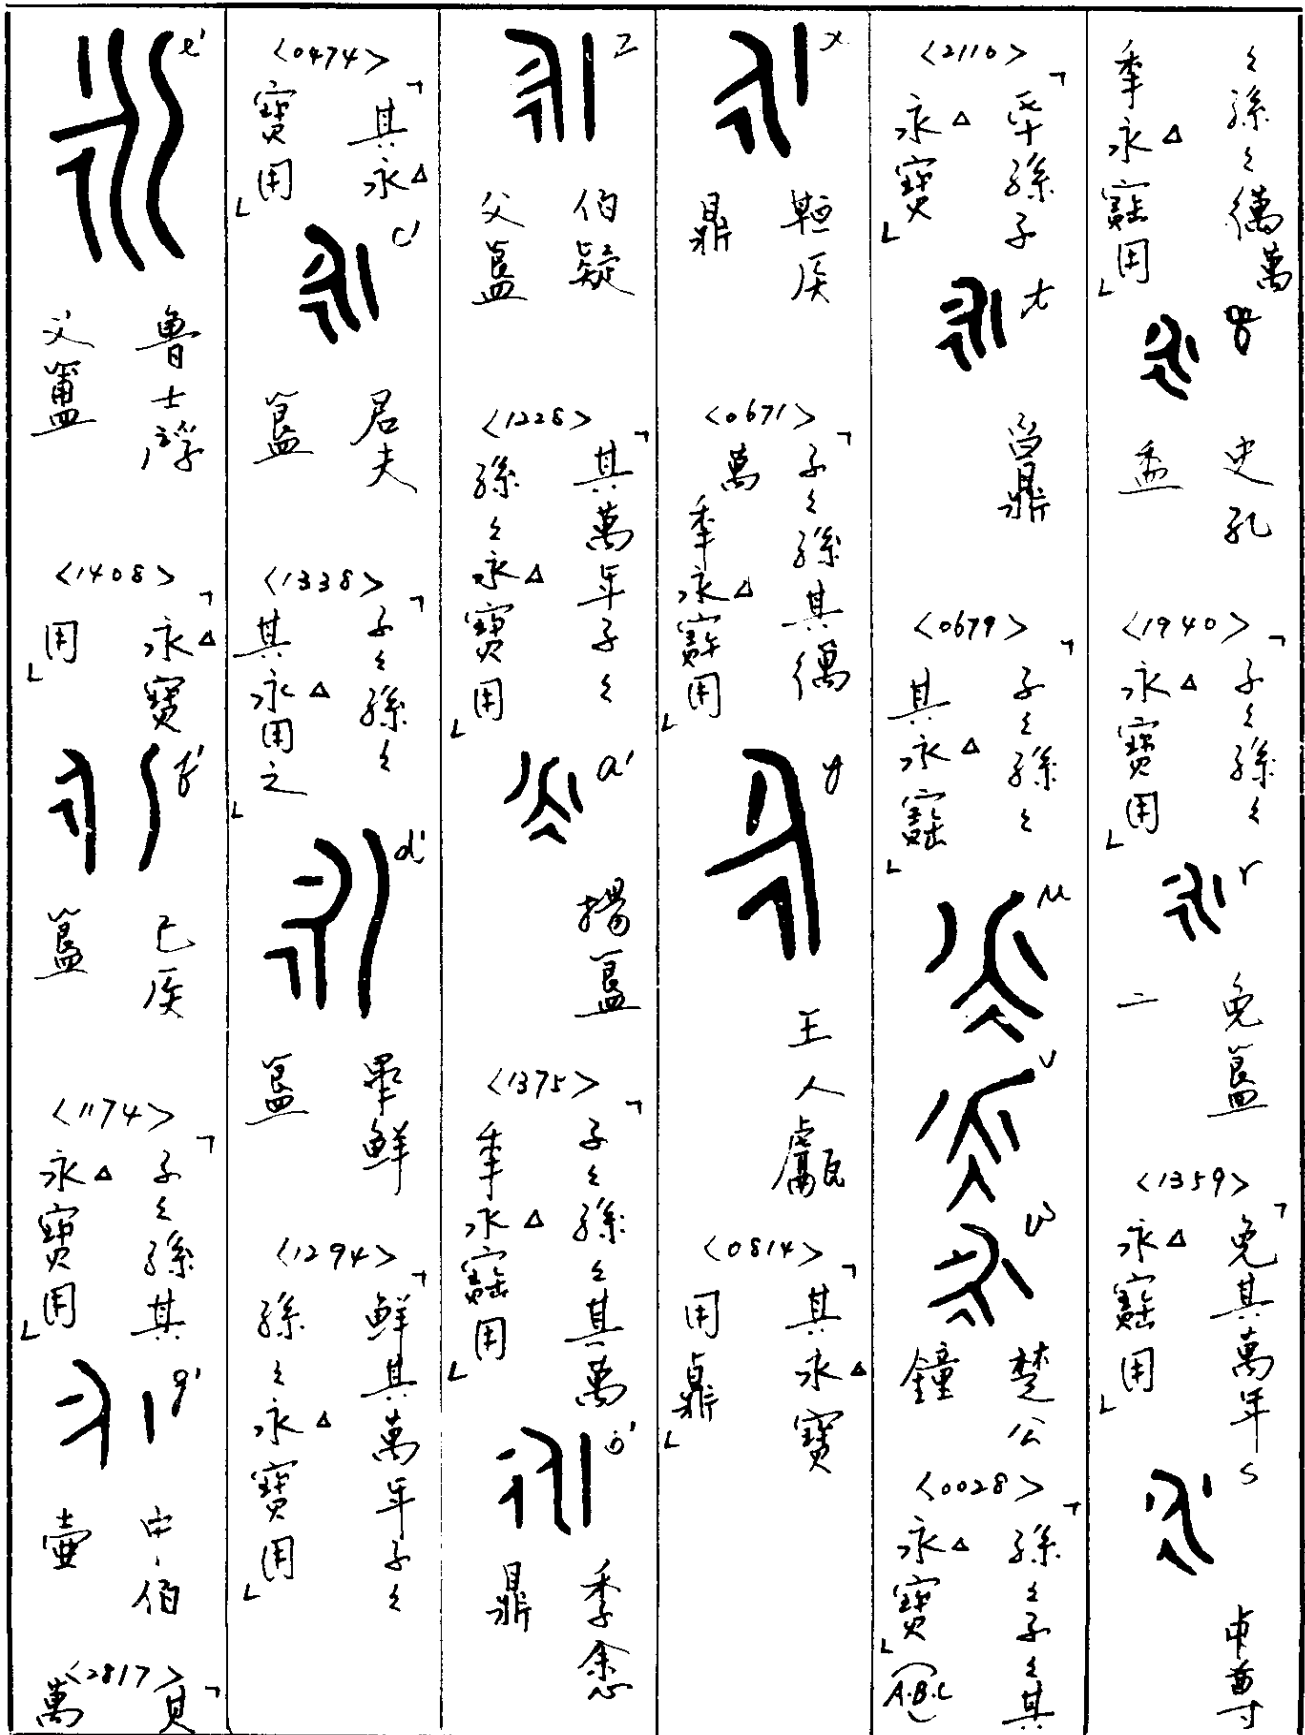 〻孫〻徳萬
秊永△寶用」
q
史孔
盉
<1940>
「子〻孫〻
永△寶用」
r
免簋
二
<1359>
「免其萬年
永△寶用」
s
尊
<2110>
「氒孫子
永△寶」
t
鼎
<0679>
「子〻孫〻
其永△寶」
u
v
w
楚公
鐘
<0028>
「孫〻子〻其
永△寶」
(A.B.C)
x
侯
鼎
<0671>
「子〻孫其
萬
秊永△寶用」
y
王人甗
<0814>
「其永△寶
用鼎」
z
伯疑
父簋
<1228>
「其萬年子〻
孫〻永△寶用」
a'
揚簋
<1375>
「子〻孫〻其萬
秊永△寶用」
b'
季悆
鼎
<0474>
「其永△
寶用」
c'
君夫
簋
<1338>
「子〻孫〻
其永△用之」
d'
畢鮮
簋
<1294>
「鮮其萬年子〻
孫〻永△寶用」
e'
魯士
父簠
<1408>
「永△寶
用」
f'
己侯
簋
<1174>
「子〻孫其
永△寶用」
g'
中伯
壺
<2817>
「其
萬